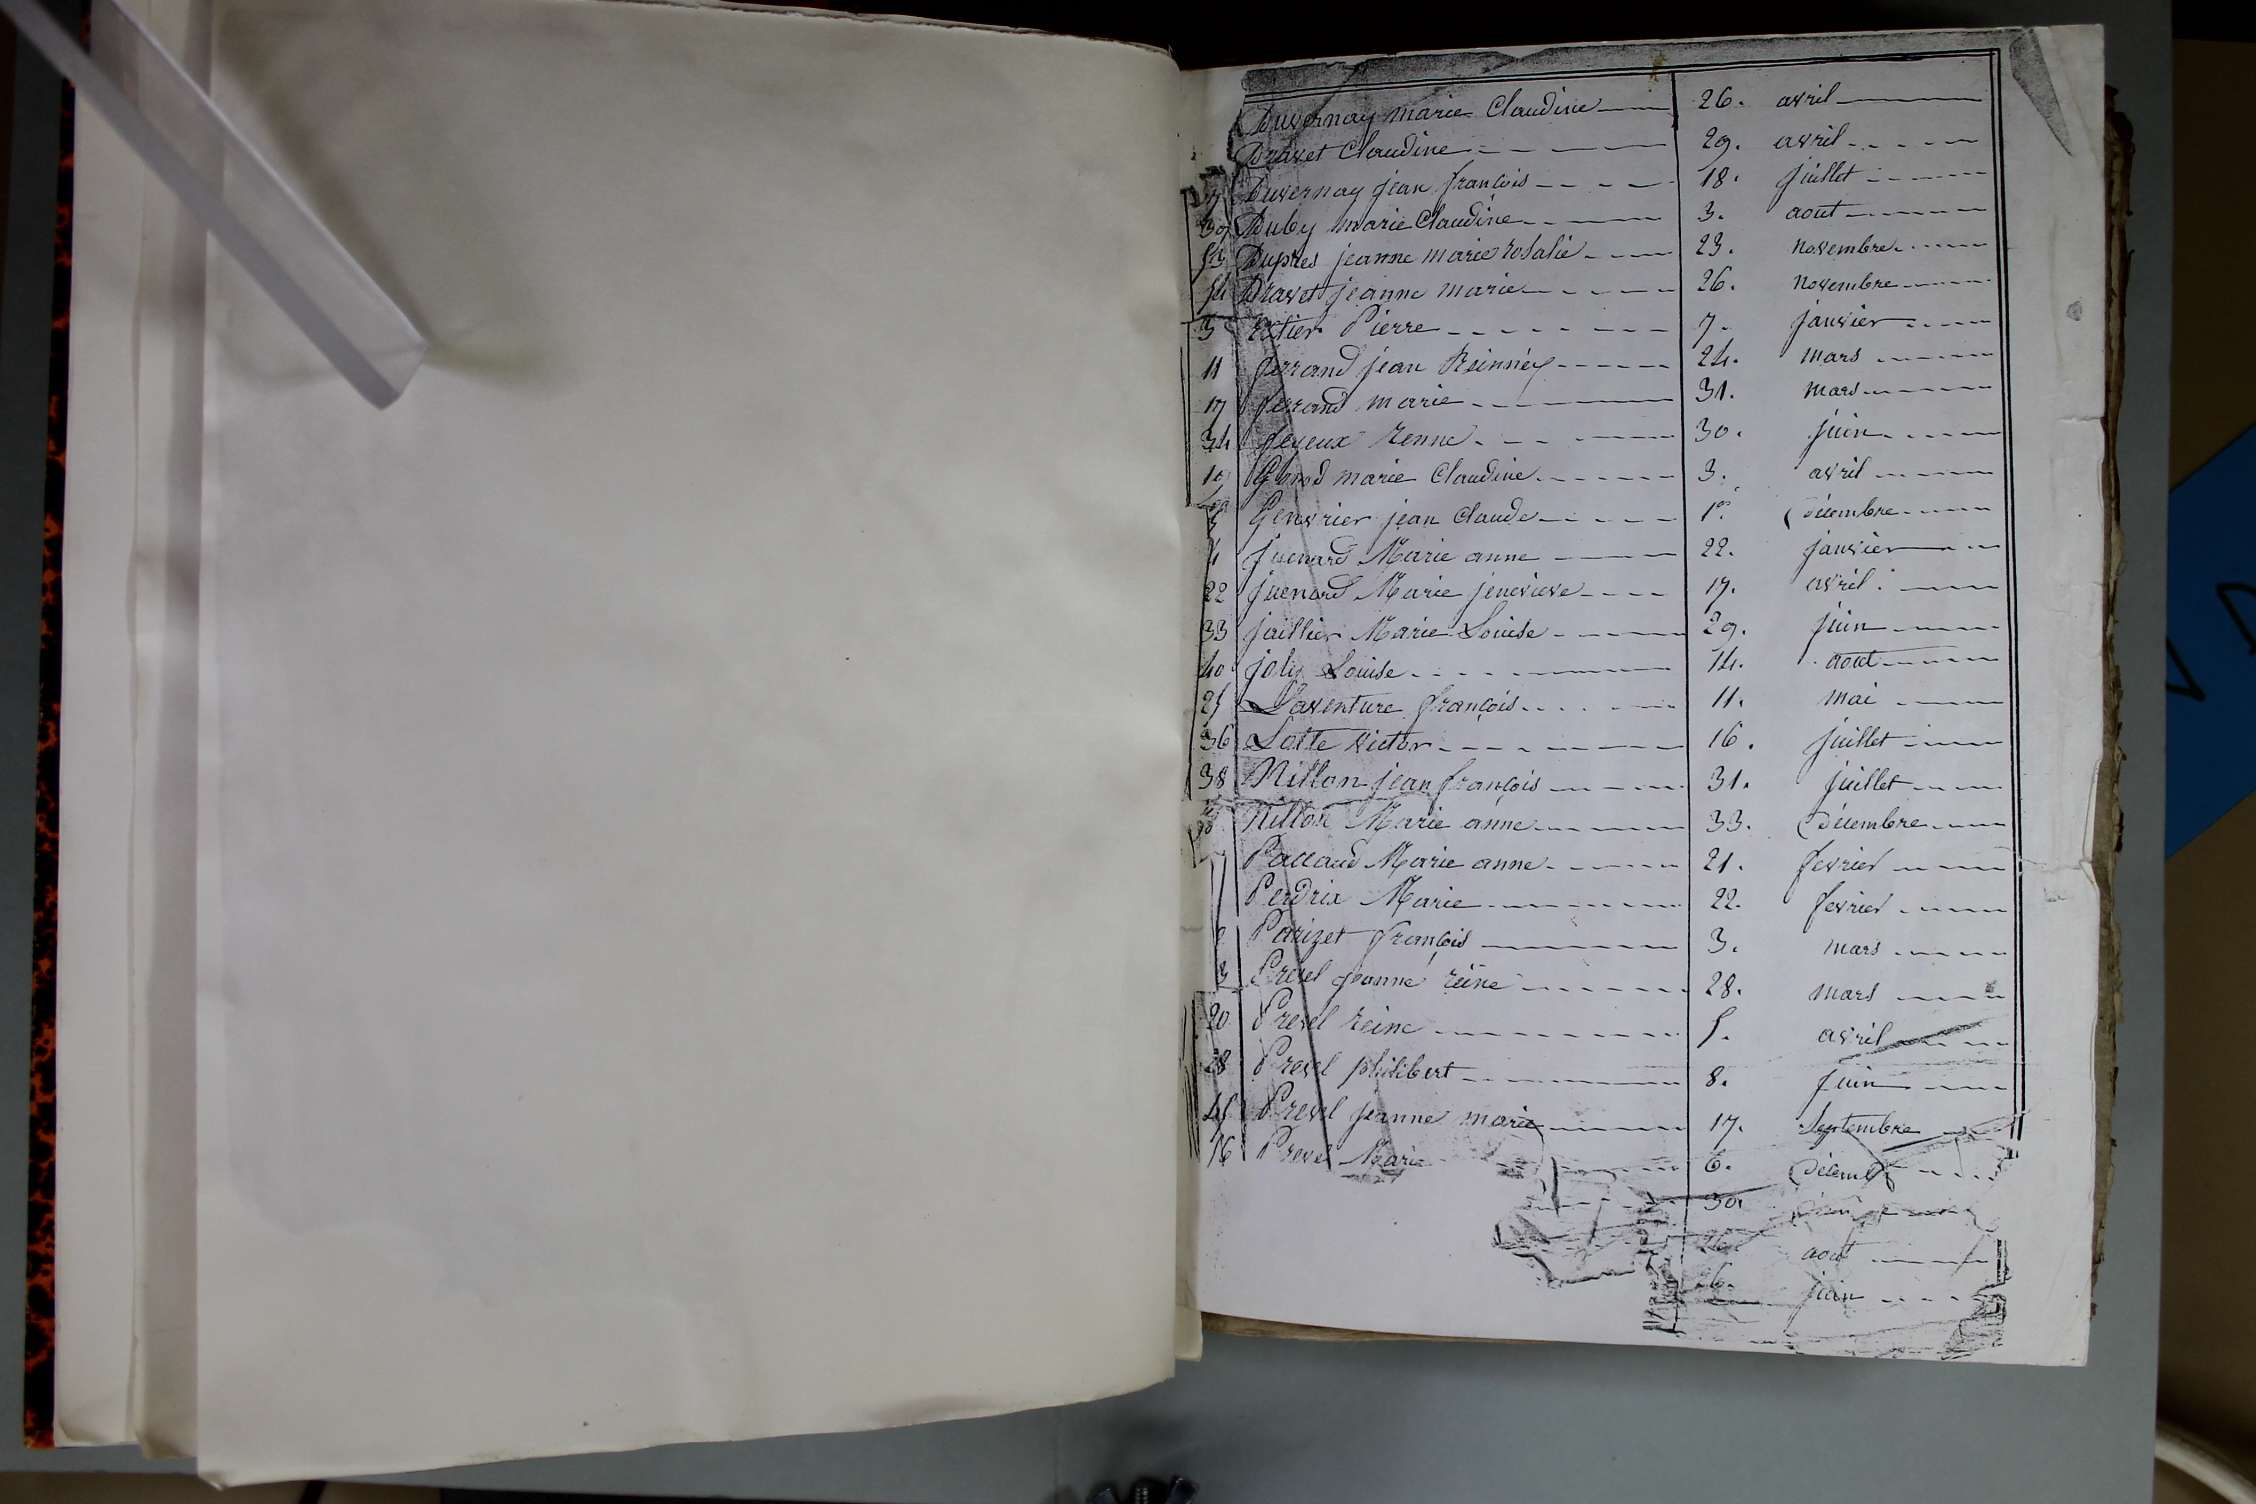 Duvernay marie Claudine 26. avril
Dravet Claudine 29. avril
Duvernay jean françois 18. juillet
39 Duby marie Claudine 3. aout
53 Dupres jeanne marie rosalie 23. novembre
54 Dravet jeanne marie 26. novembre
3 Extier Pierre 7. janvier
11 ferrand jean 24. mars
17 ferrand marie 31. mars
34 renne 30. juin
marie Claudine 3. avril
Genvrier jean Claude 1er. décembre
4 juenard Marie anne 22. janvier
22 juenard Marie jenevieve 17. avril
33 jaillier Marie Louise 29. juin
40 joly Louise 14. aout
25 Laventure françois 11. mai
36 Lotte victor 16. juillet
38 Nillon jean françois 31. juillet
Nillon Marie anne 33. décembre
Paccaud Marie anne 21. fevrier
Perdrix Marie 22. fevrier
Parizet françois 3. mars
Prevel jeanne reine 28. mars
20 Prevel reine 5. avril
28 Prevel philibert 8. juin
45 Prevel jeanne marie 17. Septembre
56 Prevel Marie 6. décemb
30.
aout
26. juin